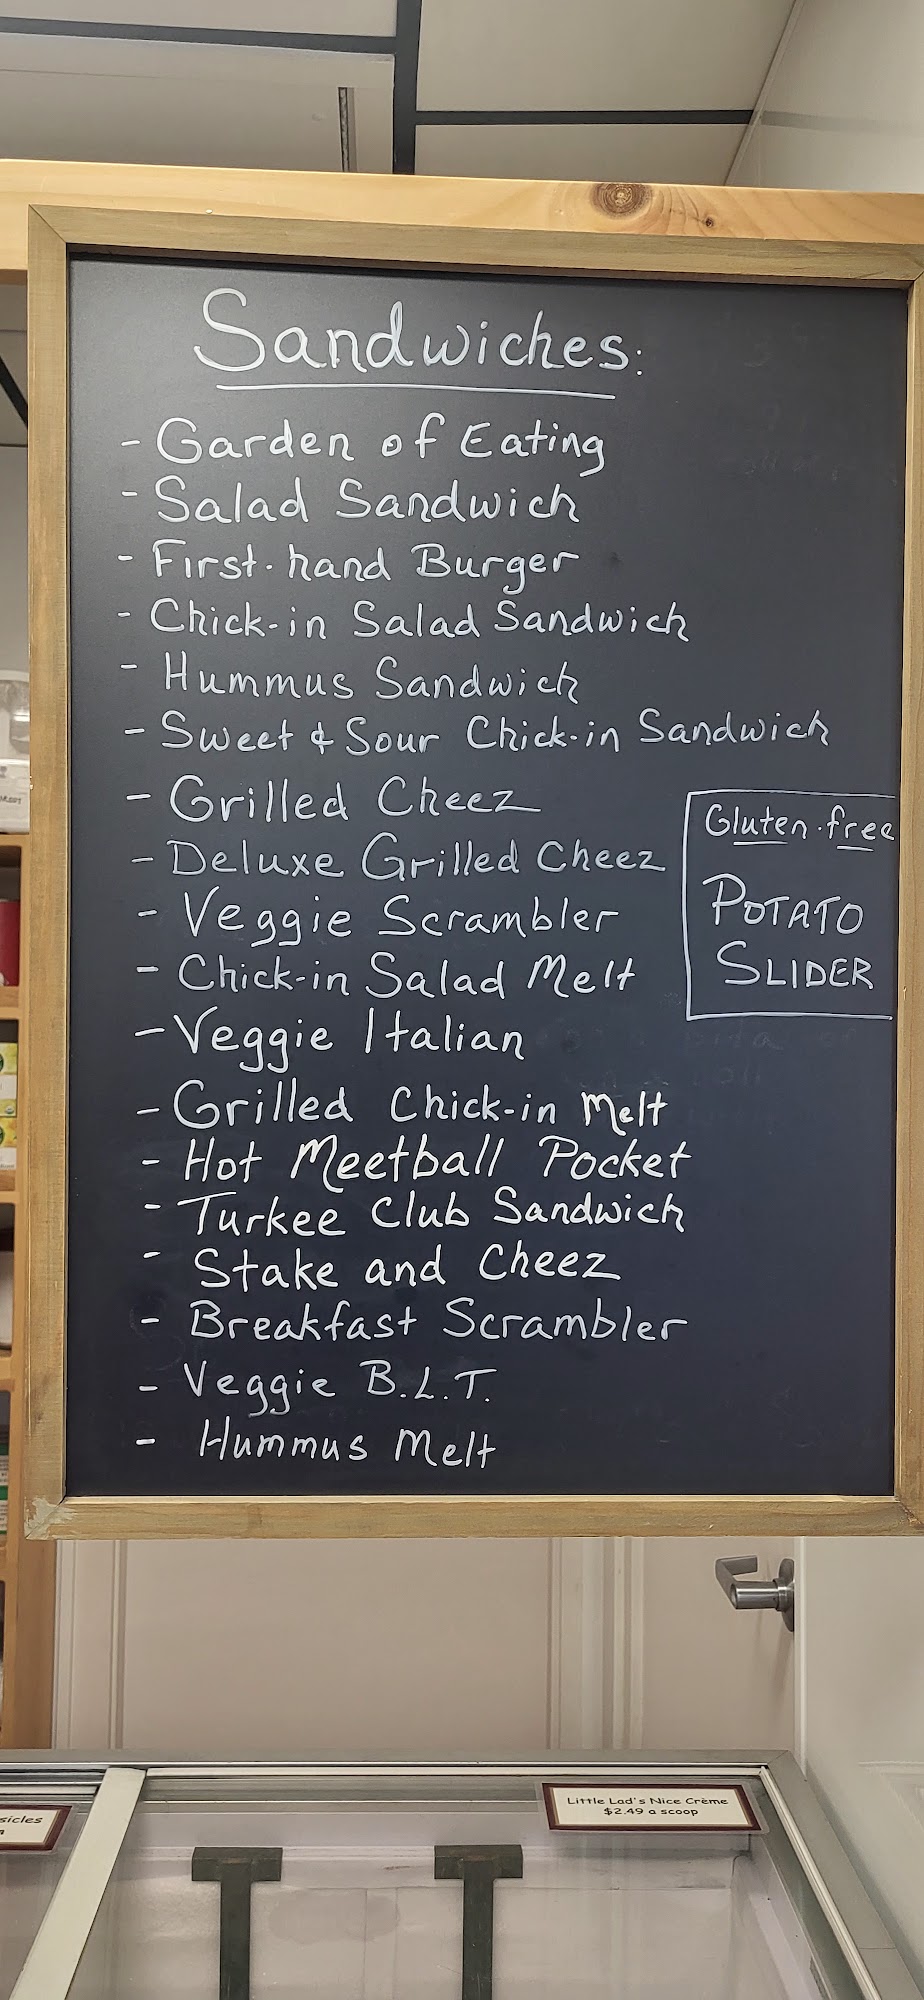 Sandwiches:
- Garden of Eating
- Salad Sandwich
- First-hand Burger
- Chick-in Salad Sandwich
- Hummus Sandwich
- Sweet & Sour Chick-in Sandwich
- Grilled Cheez
- Deluxe Grilled Cheez
- Veggie Scrambler
- Chick-in Salad Melt
- Veggie Italian
- Grilled Chick-in Melt
- Hot Meetball Pocket
- Turkee Club Sandwich
- Stake and Cheez
- Breakfast Scrambler
- Veggie B.L.T.
- Hummus Melt
Gluten-free
POTATO
SLIDER
Little Lad's Nice Crème
$2.49 a scoop